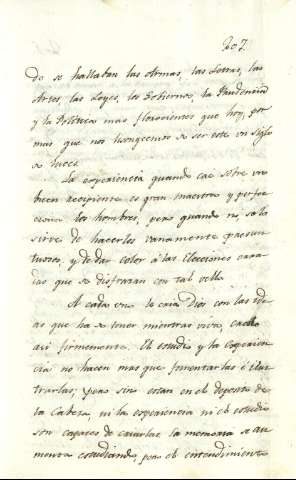 207.
do se hallaban las Armas, las Letras, las
Artes, las Leyes, los Gobiernos, la Prudencia
y la Politica mas florecientes que hoy, por
mas que nos lisongeemos de ser este un siglo
de luces.
La experiencia quando cae sobre un
buen recipiente es gran maestra y perfec
ciona los hombres, pero quando no, solo
sirve de hacerlos vanamente presun
tuosos, y de dar color á las elecciones
que se disfrazan con tal velo.
A cada uno le cria Dios con las ide
as que ha de tener mientras viva, creolo
asi firmemente. El estudio y la experien
cia no hacen mas que fomentarlas é ilus
trarlas; pero sino estan en el deposito de
la Cabeza, ni la experiencia ni el estudio
son capaces de criarlas: la memoria se au
menta estudiando, pero el entendimiento